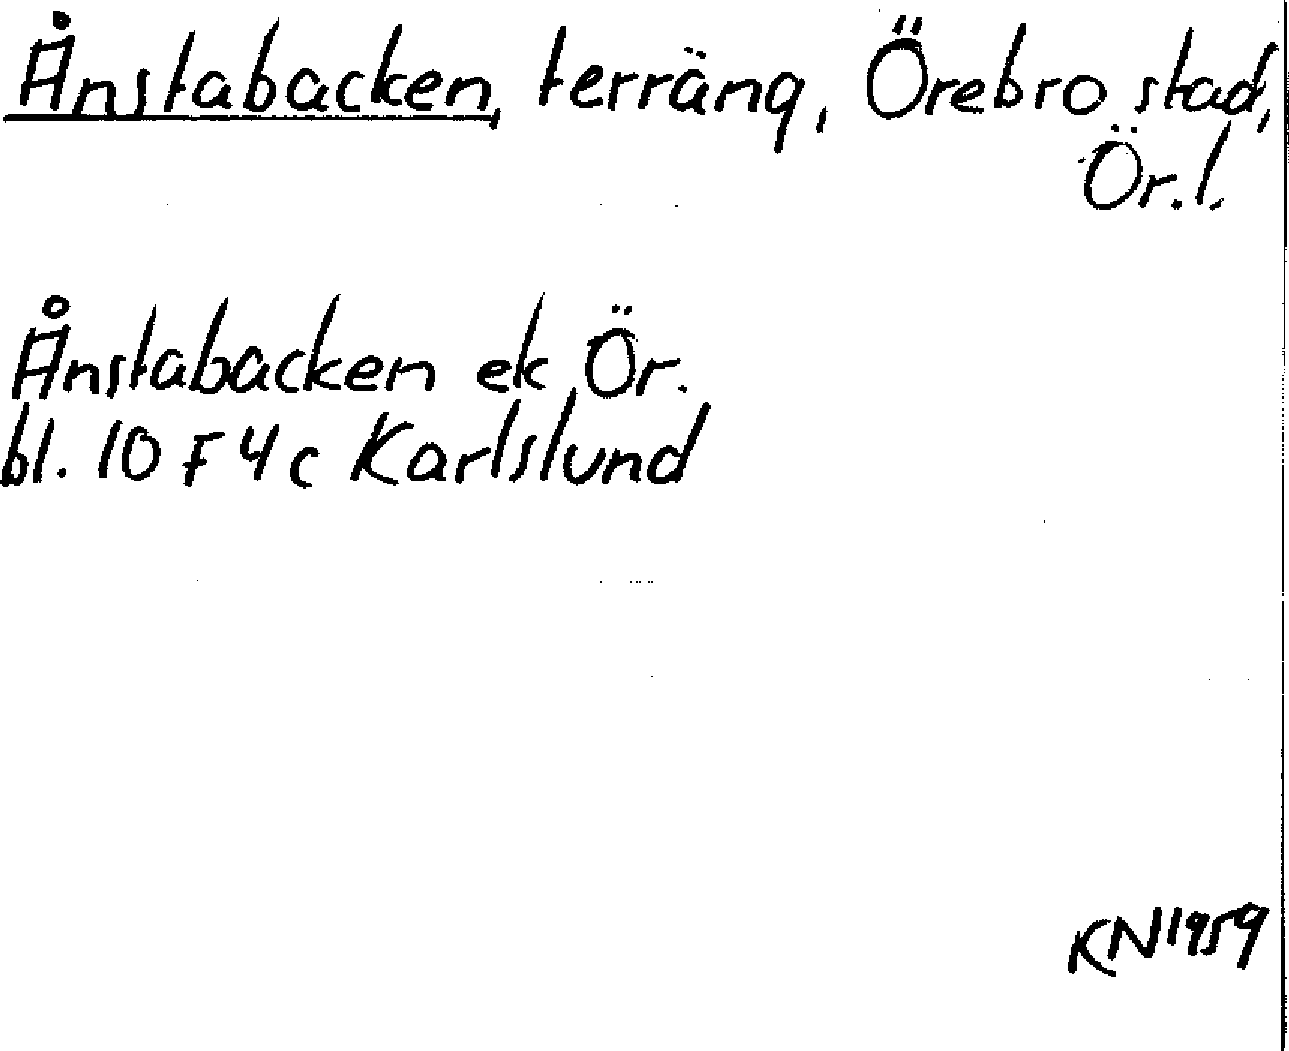 Ånstabacken, terräng, Örebro stad,
Ör.l.
Ånstabacken ek, Ör.
bl. 10 F 4 c Karlslund
KN 1959